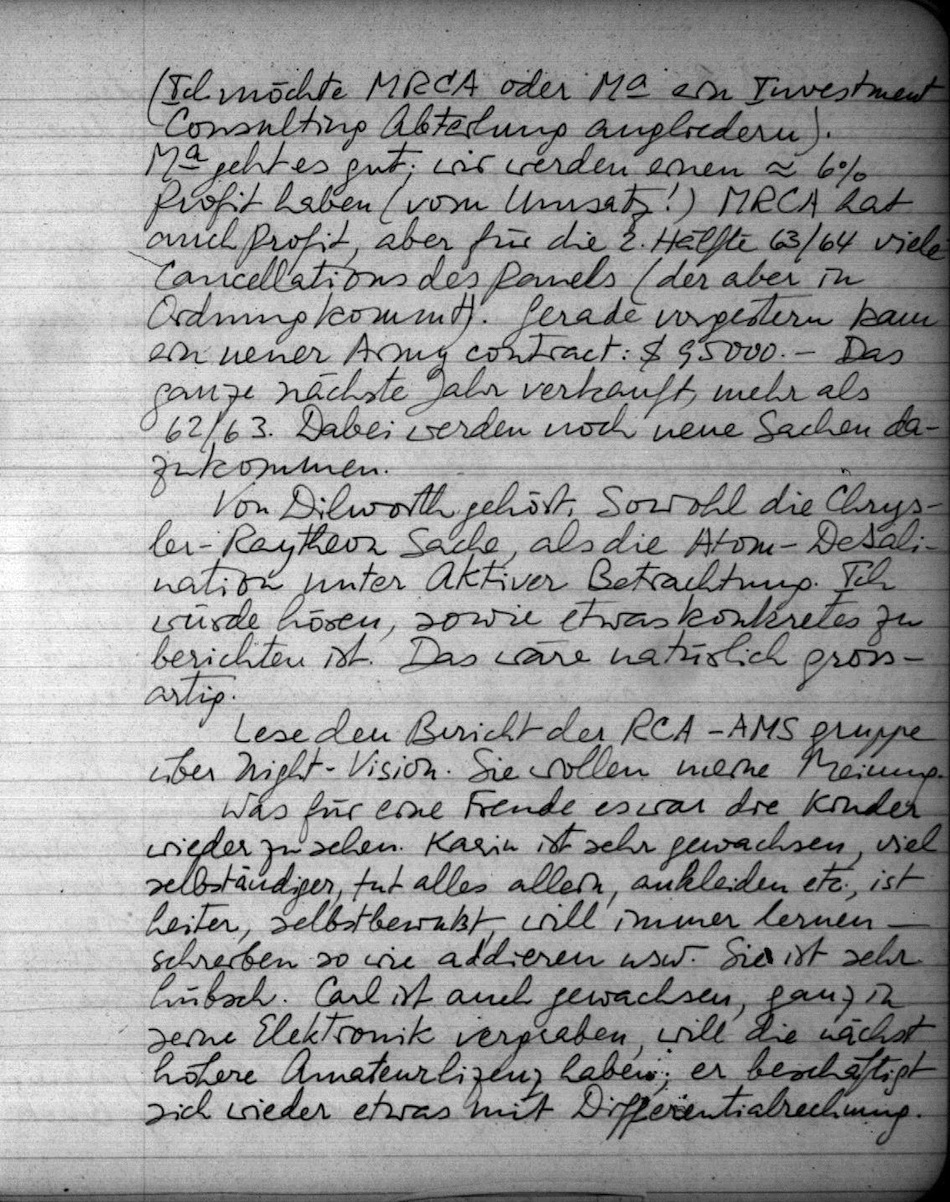 (Ich möchte MRCA oder Ma ein Investment
Consulting Abteilung angliedern).
Ma geht es gut; wir werden einen ≈ 6%
Profit haben (vom Umsatz!) MRCA hat
auch Profit, aber für die 2. Hälfte 63/64 viele
Cancellations des Panels (der aber in
Ordnung kommt). Gerade vorgestern kam
ein neuer Army contract: $ 95000.– Das
ganze nächste Jahr verkauft, mehr als
62/63. Dabei werden noch neue Sachen da-
zukommen.
Von Dilworth gehört. Sowohl die Chrys-
ler-Raytheon Sache, als die Atom-Desali-
nation unter Aktiver Betrachtung. Ich
würde hören, sowie etwas konkretes zu
berichten ist. Das wäre natürlich gross-
artig.
Lese den Bericht der RCA-AMS gruppe
über Night-Vision. Sie wollen meine Meinung.
Was für eine Freude es war die Kinder
wieder zu sehen. Karin ist sehr gewachsen, viel
selbständiger, tut alles allein, ankleiden etc., ist
heiter, selbstbewußt, will immer lernen –
schreiben so wie addieren usw. Sie ist sehr
hübsch. Carl ist auch gewachsen, ganz in
seine Elektronik vergraben, will die nächst
höhere Amateurlizenz haben; er beschäftigt
sich wieder etwas mit Differentialrechnung.